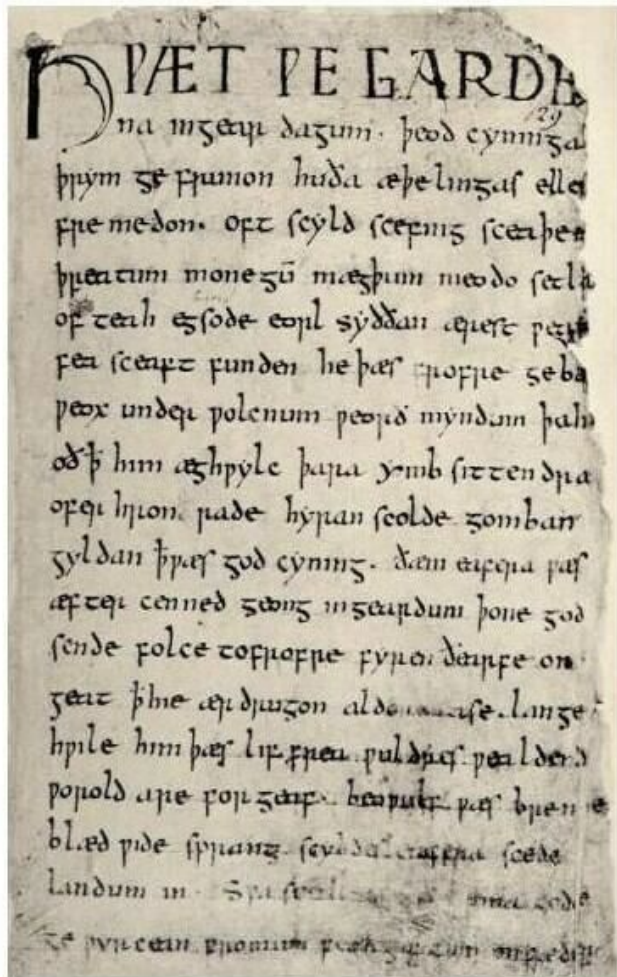 HǷÆT ǷE GARDE
129
na ingear dagum. þeod cyninga
þrym ge frunon huða æþelingas elle
fremedon. oft scyld scefing sceaþe
þreatum monegū mægþum meodo setla
of teah egsode eorl syððan ærest ƿear
fea sceaft funden he þæs frofre geba
ƿeox under ƿolcnum ƿeorð myndum þah
oð ꝥ him æghƿylc þara ymb sittendra
ofer hron rade hyran scolde gomban
gyldan ꝥ ƿæs god cyning. ðæm eafera ƿæs
æfter cenned geong in geardum þone god
sende folce tofrofre fyren ðearfe on
geat ꝥ hie ær drugon lange
hƿile him þæs lif frea ƿuldres ƿealdend
ƿorold are for geaf. beoƿulf ƿæs breme
blæd ƿide sprang scyldes eafera scede
landum in. Sƿa guma gode
ge ƿyrcean fromum feoh giftum